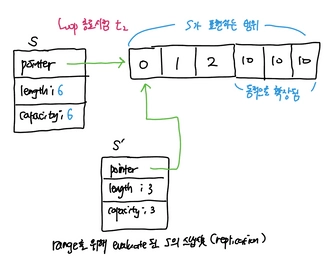 Loop 종료시점 t₂
S가 표현하는 범위
S
pointer
length: 6
capacity: 6
0 1 2 10 10 10
동적으로 확장됨
S'
pointer
length: 3
capacity: 3
range를 위해 evaluate된 S의 스냅샷 (replication)